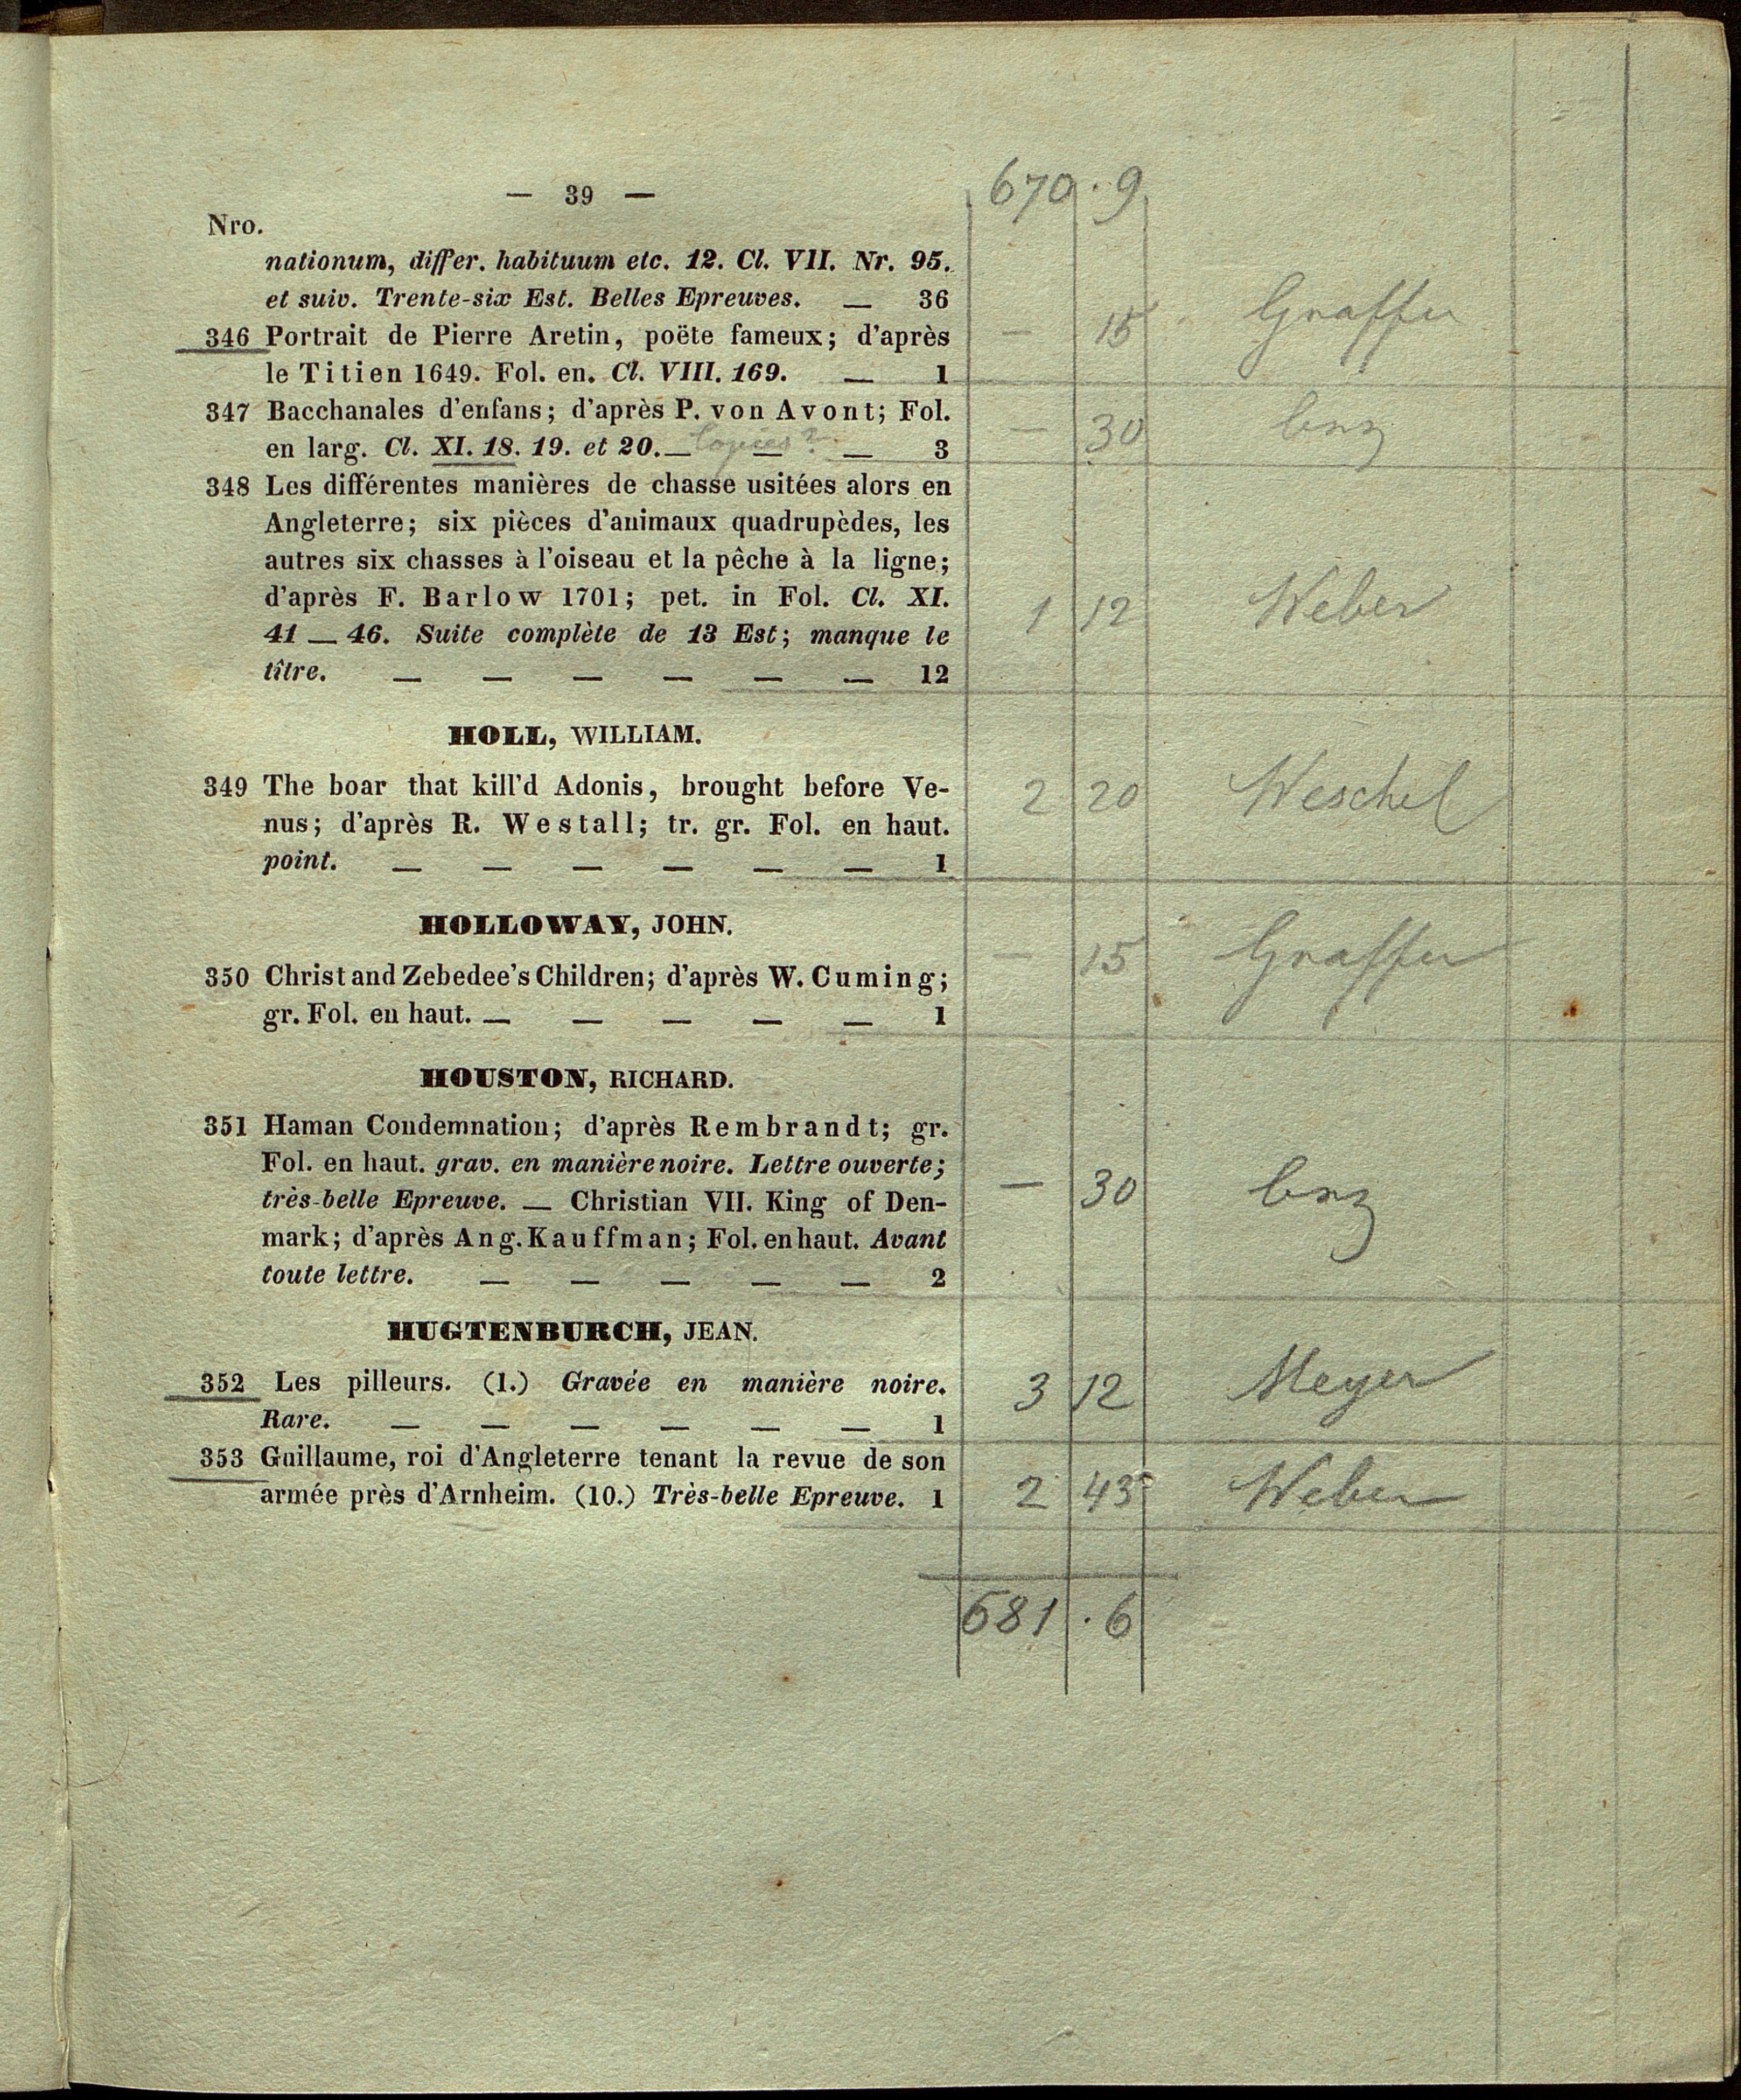 — 39 —
670 . 9
Nro.
nationum, differ. habituum etc. 12. Cl. VII. Nr. 95.
et suiv. Trente-six Est. Belles Epreuves. — 36
346 Portrait de Pierre Aretin, poëte fameux; d'après
le Titien 1649. Fol. en. Cl. VIII. 169. — 1
— 15 Graffer
347 Bacchanales d'enfans; d'après P. von Avont; Fol.
en larg. Cl. XI. 18. 19. et 20. — Copies? — — 3
— 30
348 Les différentes manières de chasse usitées alors en
Angleterre; six pièces d'animaux quadrupèdes, les
autres six chasses à l'oiseau et la pêche à la ligne;
d'après F. Barlow 1701; pet. in Fol. Cl. XI.
41 — 46. Suite complète de 13 Est; manque le
tître. — — — — — — 12
1 12 Weber
HOLL, WILLIAM.
349 The boar that kill'd Adonis, brought before Ve-
nus; d'après R. Westall; tr. gr. Fol. en haut.
point. — — — — — — 1
2 20 Weschel
HOLLOWAY, JOHN.
350 Christ and Zebedee's Children; d'après W. Cuming;
gr. Fol. en haut. — — — — — 1
— 15 Graffer
HOUSTON, RICHARD.
351 Haman Condemnation; d'après Rembrandt; gr.
Fol. en haut. grav. en manière noire. Lettre ouverte;
très-belle Epreuve. — Christian VII. King of Den-
mark; d'après Ang. Kauffman; Fol. en haut. Avant
toute lettre. — — — — — 2
— 30
HUGTENBURCH, JEAN.
352 Les pilleurs. (1.) Gravée en manière noire.
Rare. — — — — — — 1
3 12 Meyer
353 Guillaume, roi d'Angleterre tenant la revue de son
armée près d'Arnheim. (10.) Très-belle Epreuve. 1
2 43 Weber
681 . 6